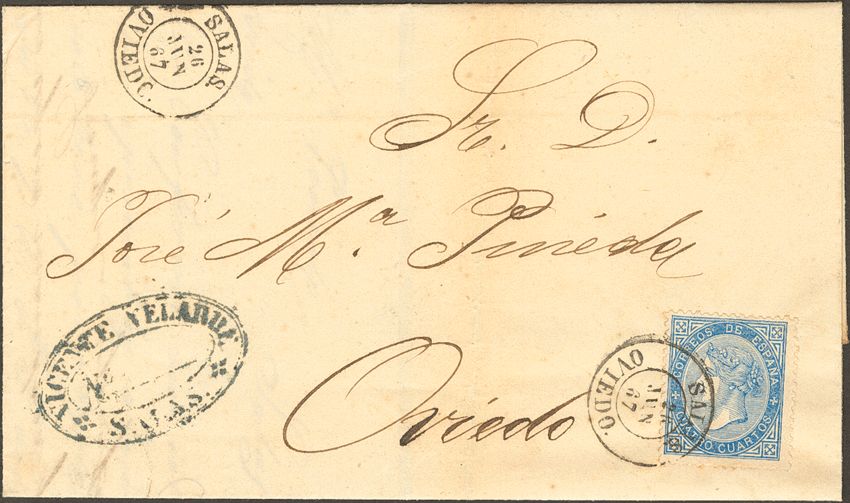 SALAS.
26
JUN
67
OVIEDO.
Sr. D.
José M.ª Pineda
Oviedo
VICENTE VELARDE
SALAS.
SALAS
JUN
67
OVIEDO.
CORREOS DE ESPAÑA
CUATRO CUARTOS